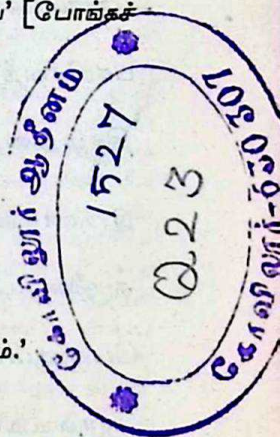 [போங்கச்
கோவிலூர் ஆதீனம்
1527
Q23
கோவிலூர்-630307
ம்.'